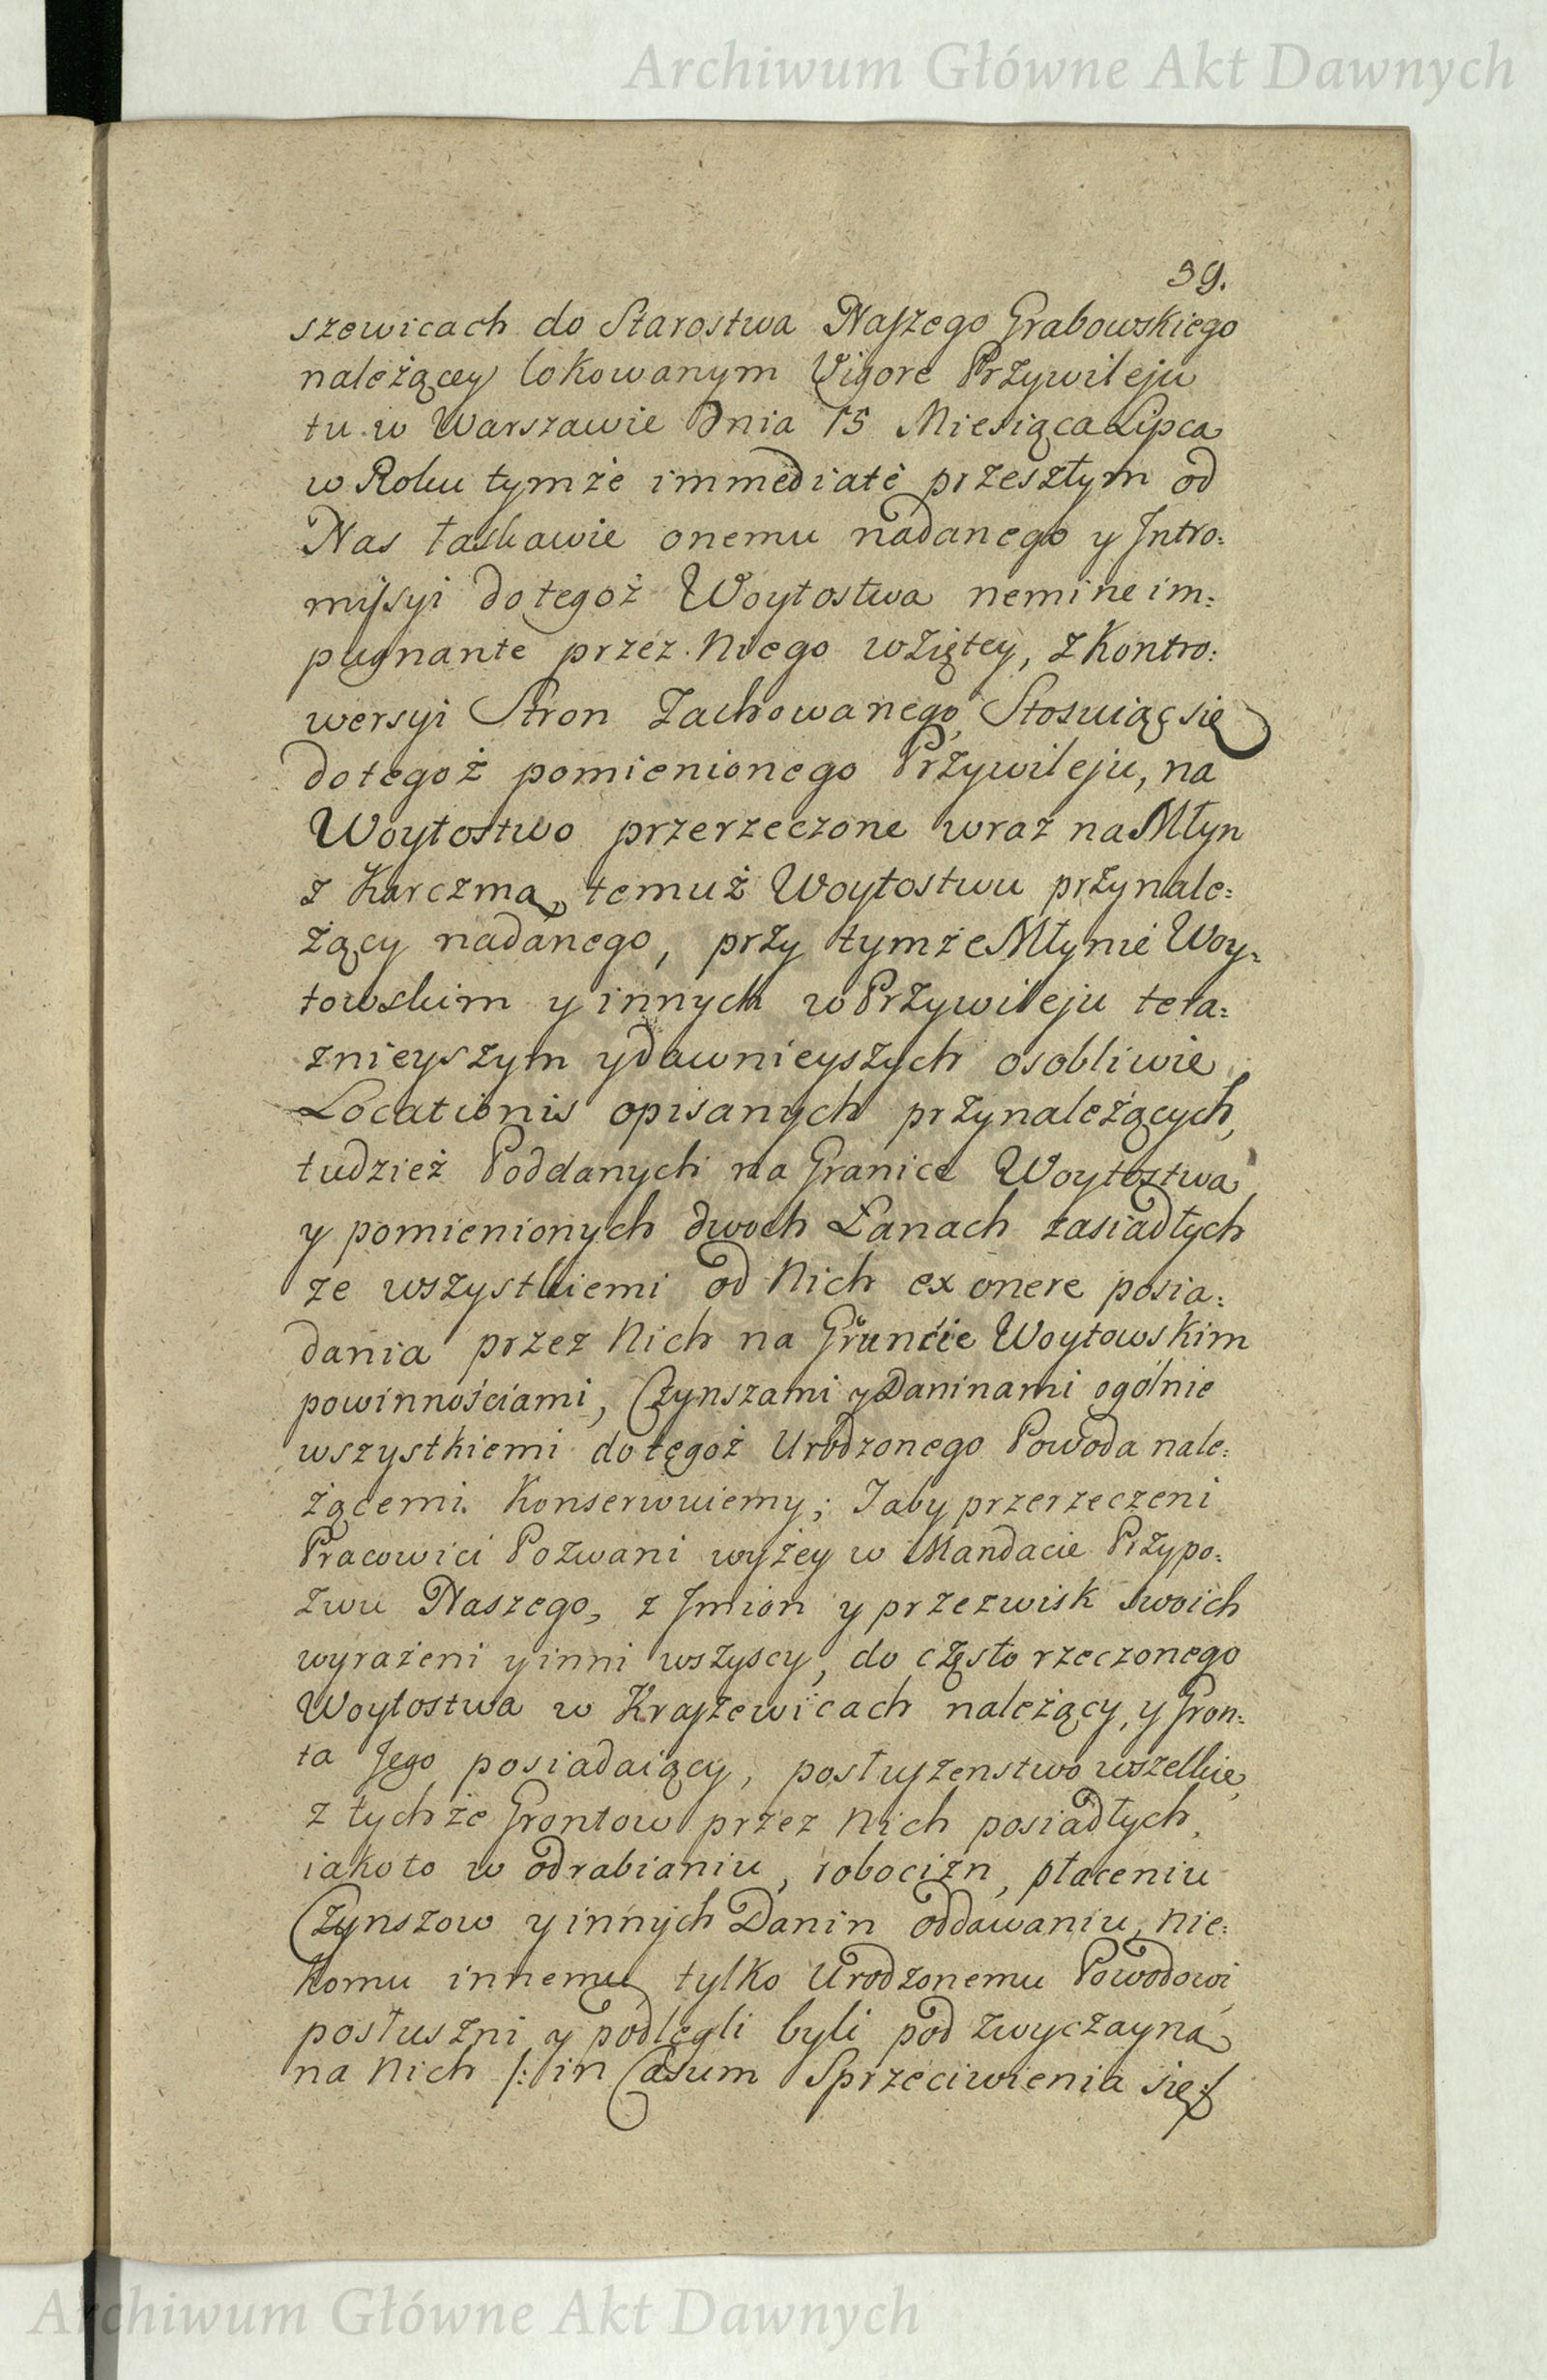 Archiwum Główne Akt Dawnych
39.
szewicach do Starostwa Naszego Grabowskiego
należącey lokowanym Vigore Przywileju
tu w Warszawie dnia 15 Miesiąca Lipca
w Roku tymże immediatè przeszłym od
Nas łaskawie onemu nadanego y Intro:
missyi do tegoż Woytostwa nemine im:
pugnante przez Niego wziętey, z Kontro:
wersyi Stron Zachowanego, Stosuiąc się
do tegoż pomienionego Przywileju, na
Woytostwo przerzeczone wraz na Młyn
z Karczmą, temuż Woytostwu przynale:
żący nadanego, przy tymże Młynie Woy:
towskim y innych w Przywileju tera:
znieyszym y dawnieyszych osobliwie
Locationis opisanych przynależących,
tudzież Poddanych na Granice Woytostwa
y pomienionych dwoch Łanach zasiadłych
ze wszystkiemi od Nich ex onere posia:
dania przez Nich na Gruncie Woytowskim
powinnościami, Czynszami y Daninami ogólnie
wszystkiemi do tegoż Urodzonego Powoda nale:
żącemi. Konserwuiemy; Iaby przerzeczeni
Pracowici Pozwani wyżey w Mandacie Przypo:
zwu Naszego, z Imion y przezwisk swoich
wyrażeni y inni wszyscy, do często rzeczonego
Woytostwa w Kraszewicach należący, y Gron:
ta Jego posiadaiący, posłuszenstwo wszelkie,
z tychże Grontow przez Nich posiadłych,
iako to w odrabianiu, robocizn, płaceniu
Czynszow y innych Danin oddawaniu, nie:
komu innemu tylko Urodzonemu Powodowi
posłuszni y podlegli byli pod zwyczayną
na Nich /: in Casum Sprzeciwienia się :/
Archiwum Główne Akt Dawnych